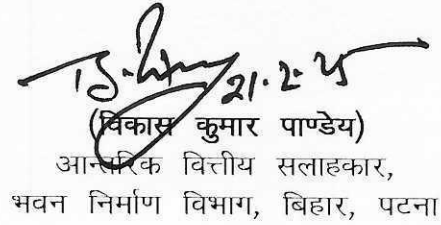 21.2.25
(विकास कुमार पाण्डेय)
आन्तरिक वित्तीय सलाहकार,
भवन निर्माण विभाग, बिहार, पटना